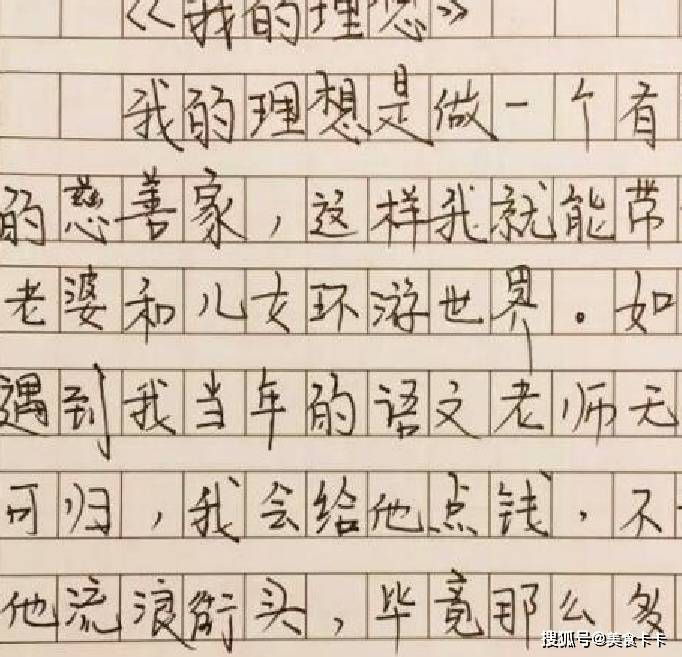 《我的理想》
我的理想是做一个有
的慈善家，这样我就能带
老婆和儿女环游世界。如
遇到我当年的语文老师无
可归，我会给他点钱，不
他流浪街头，毕竟那么多
搜狐号@美食卡卡